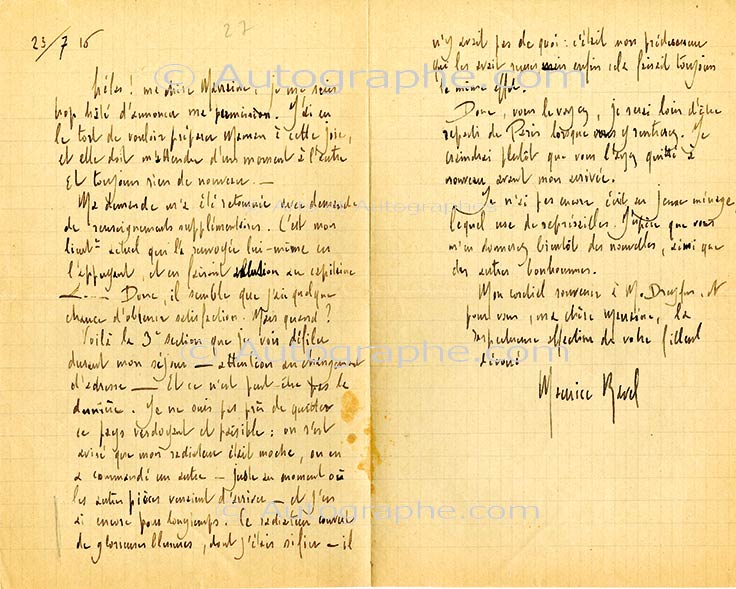 27
23/7 16
Hélas! ma chère Marraine, je me suis
trop hâté d'annoncer ma permission. J'ai eu
le tort de vouloir préparer Maman à cette joie,
et elle doit m'attendre d'un moment à l'autre
Et toujours rien de nouveau. —
Ma demande m'a été retournée avec demande
de renseignements supplémentaires. C'est mon
lieut^nt actuel qui l'a renvoyée lui-même en
l'appuyant, et en faisant allusion au capitaine
L.... Donc, il semble que j'aie quelque
chance d'obtenir satisfaction. Mais quand?
Voilà la 3e section que je vois défiler
durant mon séjour — attention au changement
d'adresse — Et ce n'est peut-être pas la
dernière. Je ne suis pas près de quitter
ce pays verdoyant et paisible: on s'est
avisé que mon radiateur était moche, on en
a commandé un autre — juste au moment où
les autres pièces venaient d'arriver — et j'en
ai encore pour longtemps. Ce radiateur couvert
de glorieuses blessures, dont j'étais si fier — il
n'y avait pas de quoi: c'était mon prédécesseur
qui les avait reçues mais enfin cela faisait toujours
le même effet.
Donc, vous le voyez, je serai loin d'être
reparti de Paris lorsque vous y rentrerez. Je
craindrai plutôt que vous l'ayez quitté à
nouveau avant mon arrivée.
Je n'ai pas encore écrit au jeune ménage,
lequel use de représailles. J'espère que vous
m'en donnerez bientôt des nouvelles, ainsi que
des autres bonhommes.
Mon cordial souvenir à M. Dreyfus, et
pour vous, ma chère Marraine, la
respectueuse affection de votre filleul
dévoué
Maurice Ravel
© Autographe.com
© Autographe.com
© Autographe.com